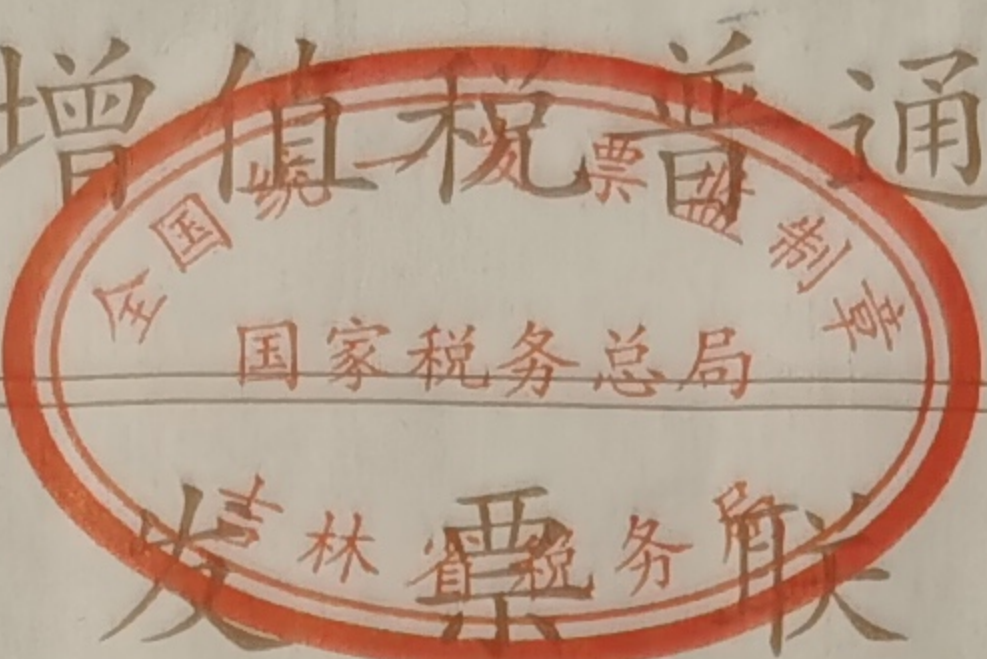 增值税普通
全国统一发票监制章
国家税务总局
吉林省税务局
发票联